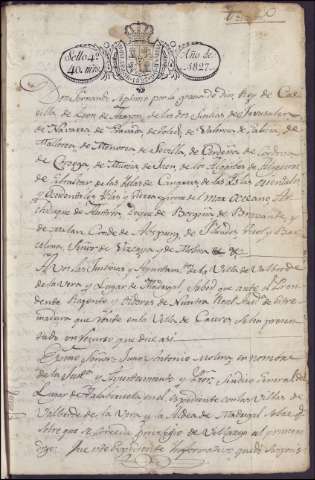 Sello 4º
40. mrs.
Año de
1827.
Don Fernando Septimo por la gracia de Dios, Rey de Cas
tilla, de Leon, de Aragon, de las dos Sicilias, de Jerusalen,
de Navarra, de Granada, de Toledo, de Valencia, de Galicia, de
Mallorca, de Menorca, de Sevilla, de Cerdeña, de Cordova,
de Corcega, de Murcia, de Jaen, de los Algarbes, de Algeciras
de Gibraltar, de las Islas de Canarias, de las Yndias orientales
y Occidentales, Yslas y tierra firme del mar Oceano, Ar
chiduque de Austria, Duque de Borgoña, de Bravante, y
de Milan, Conde de Abspurg, de Flandes, Tirol, y Bar
celona, Señor de Vizcaya, y de Molina &
A Vos las Justicia, y Ayuntamto de la Villa de Valverde
de la Vera, y Lugar de Madrigal, Sabed que ante el
Regente, y Oidores de Nuestra Real Auda de Estre
madura que reside en la Villa de Caceres, se ha presen
tado un recurso que dice asi
Señor: Juan Antonio en nombre
de la Justa Ayuntamiento y Pror Sindico General del
Lugar de en el Expediente con las Villas de
Valverde de la Vera y la Aldea de Madrigal sobre q
sobre que se le conceda privilegio de Villazgo al primero
digo: Que este Expediente informativo